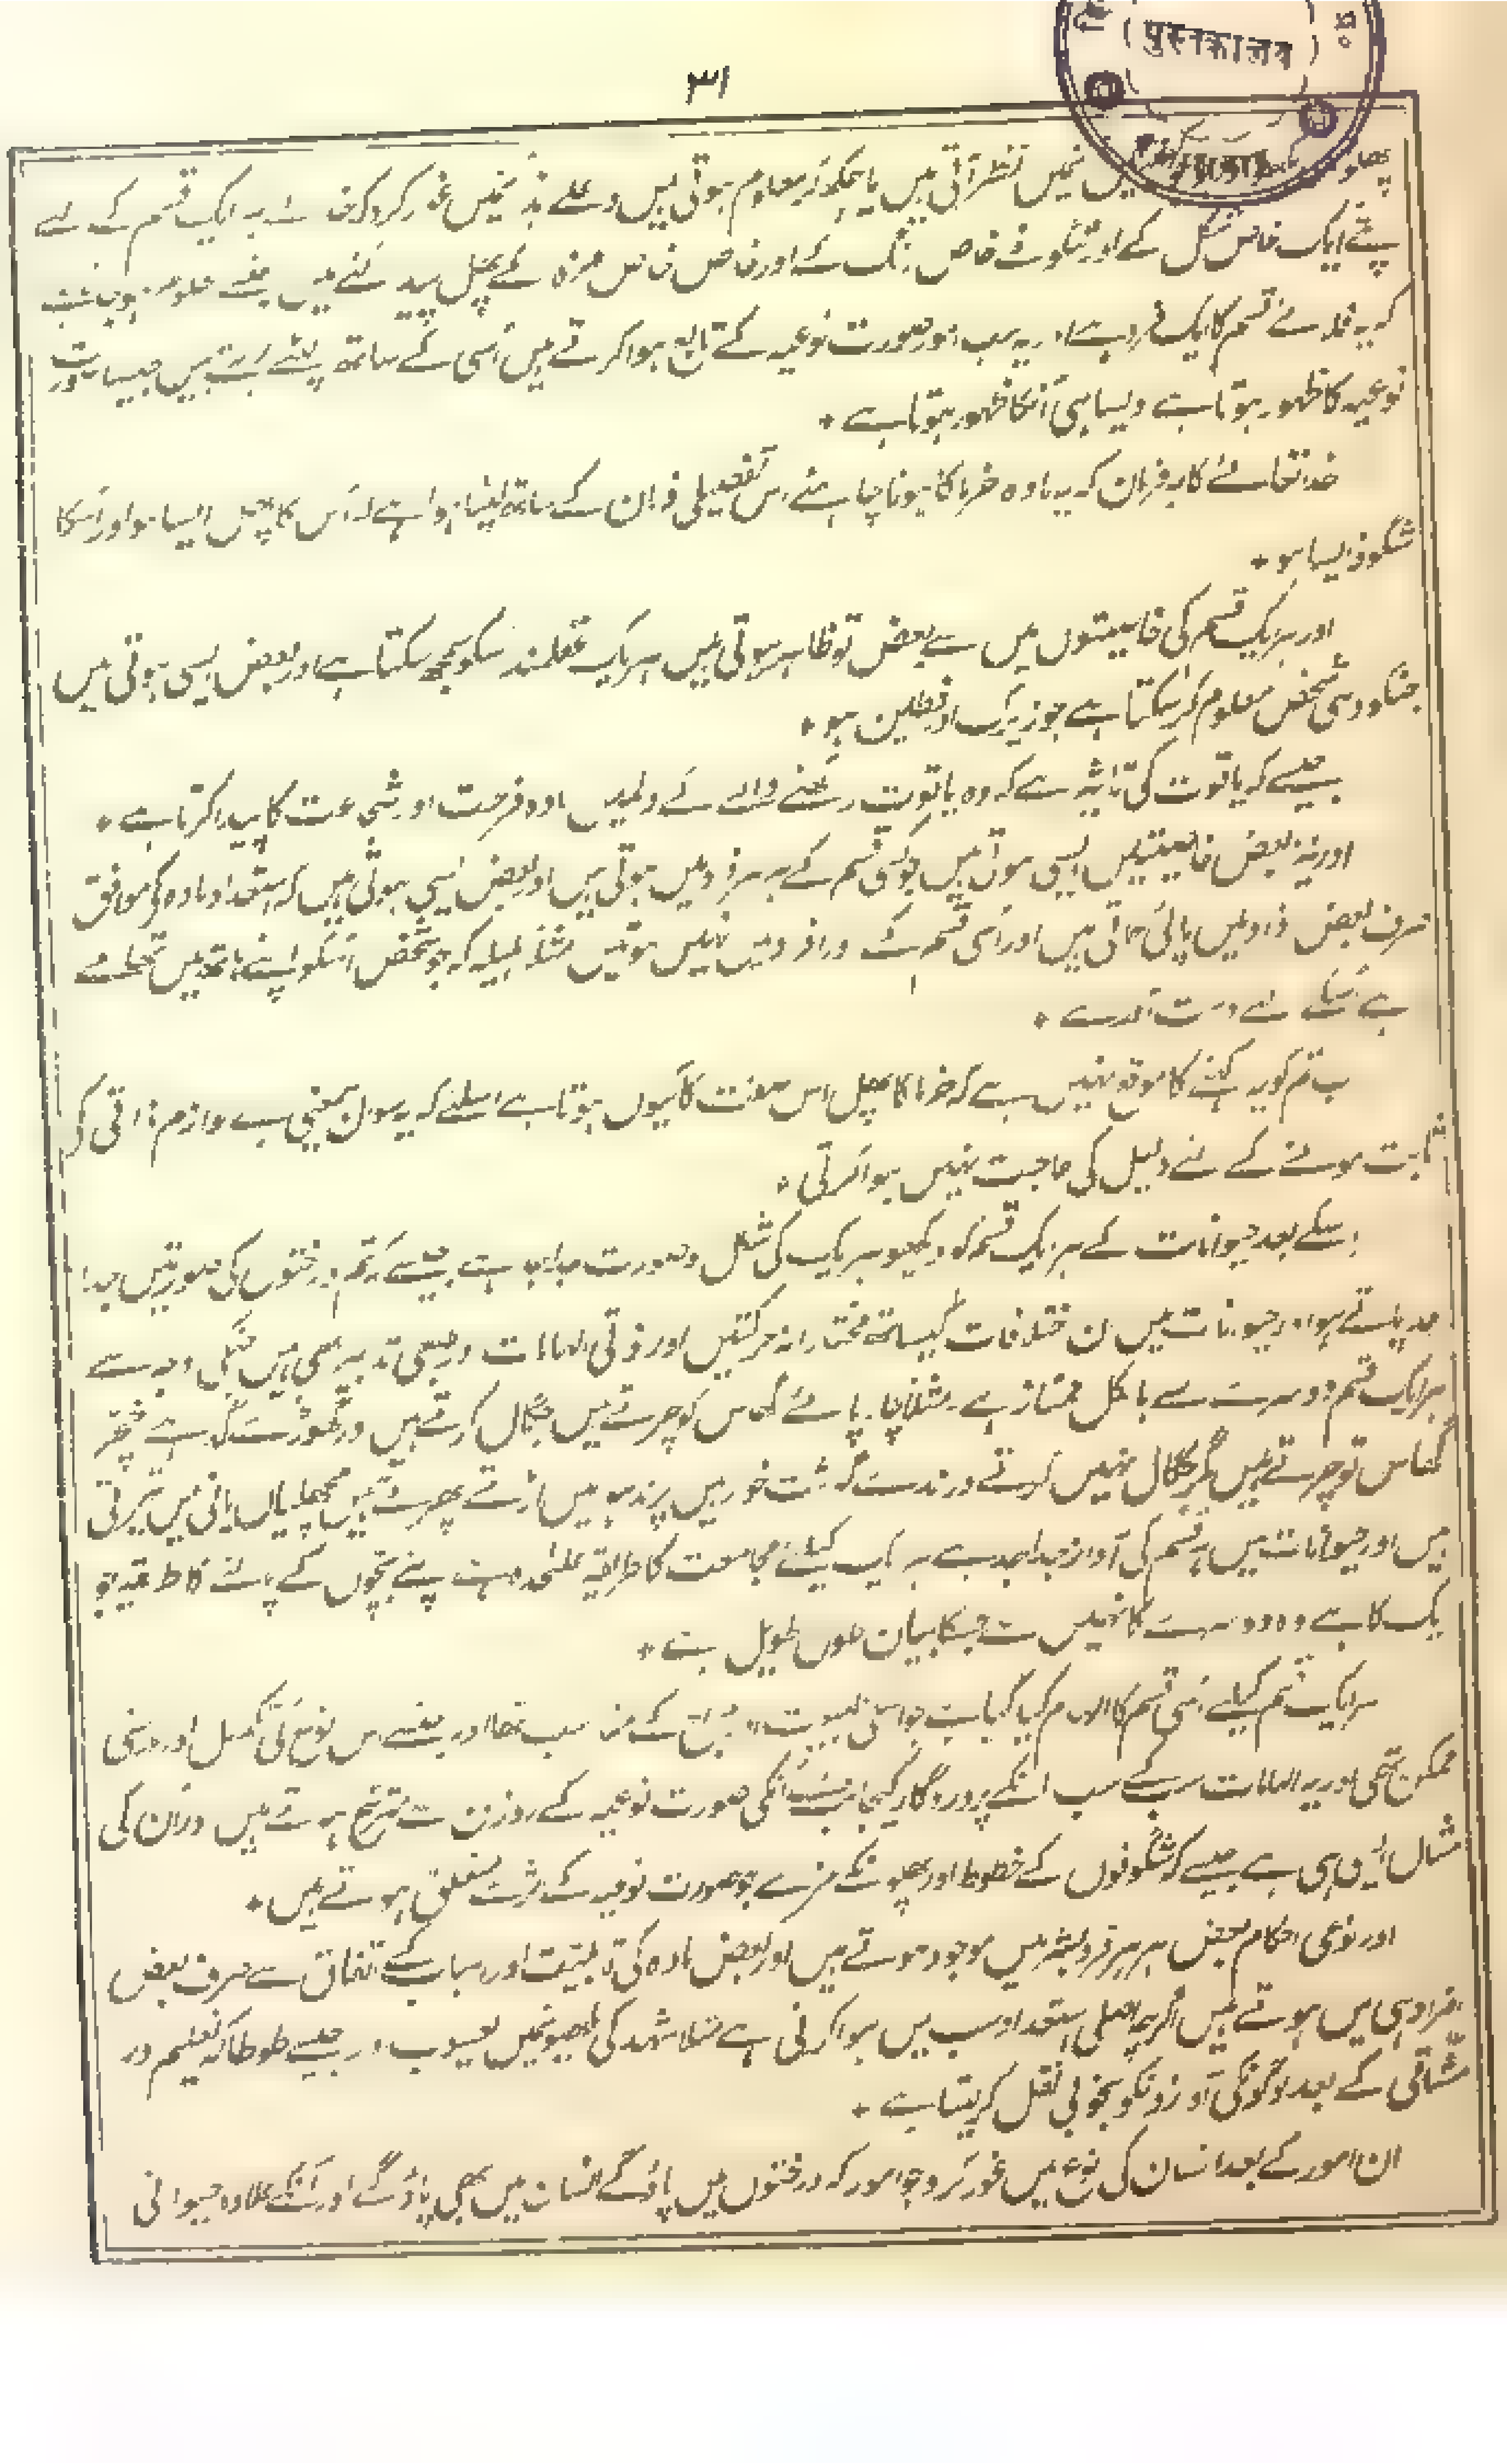 पुस्तकालय
۳۱
نظر آتی ہیں یا چمکدار معلوم ہوتی ہیں غور کرو کہ خدا نے ہر ایک قسم کے لئے
پتے ایک خاص شکل کے اور شگوفے خاص رنگ کے اور خاص خاص مزہ کے پھل پیدا کئے ہیں جنسے معلوم ہو جاتا ہے
کہ یہ فلانے قسم کا ایک فرد ہے اور یہ سب امور صورت نوعیہ کے تابع ہوا کرتے ہیں اُسی کے ساتھ لپٹے رہتے ہیں جیسا صورت
نوعیہ کا ظہور ہوتا ہے ویسا ہی اُنکا ظہور ہوتا ہے *
خدا تعالےٰ کا یہ فرمان کہ یہ مادہ خرما کا ہونا چاہئے اس تفصیلی فرمان کے ساتھ لپٹا ہوا ہے کہ اُس کا پھل ایسا ہو اور اُسکا
شگوفہ ایسا ہو *
اور ہر ایک قسم کی خاصیتوں میں سے بعض تو ظاہر ہوتی ہیں ہر ایک عقلمند اسکو سمجھ سکتا ہے اور بعض ایسی ہوتی ہیں
جنکو وہی شخص معلوم کر سکتا ہے جو زیرک اور فطین ہو *
جیسے کہ یاقوت کی تاثیر ہے کہ وہ یاقوت رکھنے والے کے دلمیں مادہ فرحت اور شجاعت کا پیدا کرتا ہے *
اور نیز بعض خاصیتیں ایسی ہوتی ہیں جو اُسی قسم کے ہر ہر فرد میں ہوتی ہیں اور بعض ایسی ہوتی ہیں کہ استعداد مادہ کے موافق
صرف بعض افراد میں پائی جاتی ہیں اور اُسی قسم کے اور افراد میں نہیں ہوتیں مثلاً ہلیلہ کہ جو شخص اُسکو اپنے ہاتھ میں تھامے
ہے اُسکے لئے دست آور ہے *
اب تم کو یہ کہنے کا موقع نہیں ہے کہ خرما کا پھل اس صفت کا کیوں ہوتا ہے اسلئے کہ یہ سوال بیمعنی ہے لوازم ذاتی کے
ثابت ہونے کے لئے دلیل کی حاجت نہیں ہوا کرتی *
اسکے بعد حیوانات کے ہر ایک قسم کو دیکھو ہر ایک کی شکل و صورت جدا ہے جیسے کہ تم درختوں کی صورتیں جدا
جدا پاتے ہو اور حیوانات میں ان اختلافات کیساتھ مختارانہ حرکتیں اور ذاتی الہامات اور طبعی تدابیر بھی ہیں جنکی وجہ سے
ہر ایک قسم دوسرے سے بالکل ممتاز ہے مثلاً چارپائے گھاس کو چرتے ہیں جگال کرتے ہیں اور گھوڑے گدہے خچر
گھاس تو چرتے ہیں مگر جگال نہیں کرتے درندے گوشت خور ہیں پرند ہوا میں اڑتے پھرتے ہیں مچھلیاں پانی میں تیرتی
ہیں اور حیوانات میں ہر قسم کی آواز جدا جدا ہے ہر ایک کیلئے مجامعت کا طریقہ علٰحدہ ہے اپنے بچوں کے پالنے کا طریقہ جو
ایک کا ہے وہ دوسرے کا نہیں ہے جسکا بیان طول طویل ہے *
ہر ایک قسم کیلئے اُسی قسم کا الہام کیا گیا ہے جو اُسکی طبیعت اور مزاج کے مناسب تھا اور جنسے اس نوع کی تکمیل اور درستی
ممکن تھی اور یہ الہامات سب کے سب اُنکے پروردگار کیجانب سے اُنکی صورت نوعیہ کے روزن سے مترشح ہوتے ہیں اور ان کی
مثال ایسی ہی ہے جیسے کہ شگوفوں کے خطوط اور پھلونکے مزے جو صورت نوعیہ کے متعلق ہوتے ہیں *
اور نوعی احکام بعض ہر ہر فرد بشر میں موجود ہوتے ہیں اور بعض مادہ کی قابلیت اور اسباب کے اتفاق سے صرف بعض
افراد ہی میں ہوتے ہیں اگرچہ اصلی استعداد سب میں ہوا کرتی ہے مثلاً شہد کی مکھیونمیں یعسوب اور جیسے طوطا کہ تعلیم اور
مشاقی کے بعد لوگونکی آوازونکو بخوبی نقل کر لیتا ہے *
ان امور کے بعد انسان کی نوع میں غور کرو جو امور کہ درختوں میں پاؤگے انسان میں بھی پاؤگے اور اُنکے علاوہ حیوانی